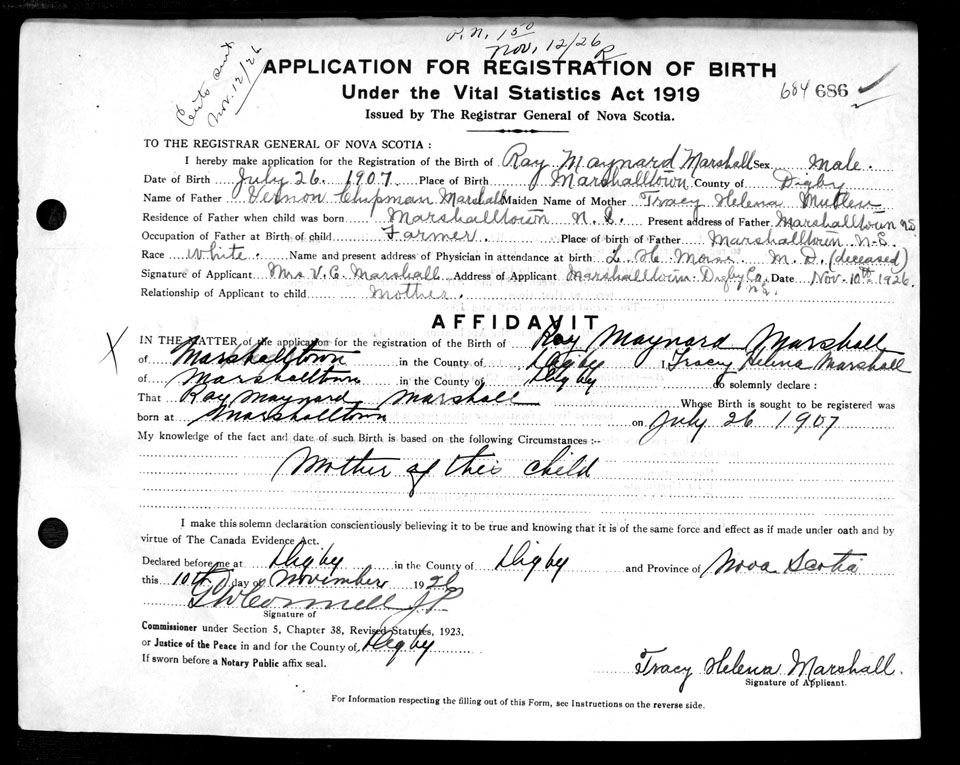 P.N. 1 50
Nov. 12/26
R
Certs sent
Nov. 12/26
APPLICATION FOR REGISTRATION OF BIRTH
Under the Vital Statistics Act 1919
684 686
Issued by The Registrar General of Nova Scotia.
TO THE REGISTRAR GENERAL OF NOVA SCOTIA :
I hereby make application for the Registration of the Birth of Ray Maynard Marshall Sex Male.
Date of Birth July 26. 1907. Place of Birth Marshalltown County of Digby
Name of Father Vernon Chipman Marshall Maiden Name of Mother Tracy Helena
Residence of Father when child was born Marshalltown N.S. Present address of Father Marshalltown N.S.
Occupation of Father at Birth of child Farmer. Place of birth of Father Marshalltown N.S.
Race White. Name and present address of Physician in attendance at birth L. H. Morse M. D. (deceased)
Signature of Applicant Mrs V. C. Marshall Address of Applicant Marshalltown Digby Co. N.S. Date Nov. 10th 1926.
Relationship of Applicant to child Mother.
AFFIDAVIT
X
IN THE MATTER of the application for the registration of the Birth of Ray Maynard Marshall
of Marshalltown in the County of Digby I, Tracy Helena Marshall
of Marshalltown in the County of Digby do solemnly declare :
That Ray Maynard Marshall Whose Birth is sought to be registered was
born at Marshalltown on July 26 1907
My knowledge of the fact and date of such Birth is based on the following Circumstances :--
Mother of this child
I make this solemn declaration conscientiously believing it to be true and knowing that it is of the same force and effect as if made under oath and by
virtue of The Canada Evidence Act.
Declared before me at Digby in the County of Digby and Province of Nova Scotia
this 10th day of November 1926
J.P.
Signature of
Commissioner under Section 5, Chapter 38, Revised Statutes, 1923.
or Justice of the Peace in and for the County of Digby
If sworn before a Notary Public affix seal.
Tracy Helena Marshall.
Signature of Applicant.
For Information respecting the filling out of this Form, see Instructions on the reverse side.